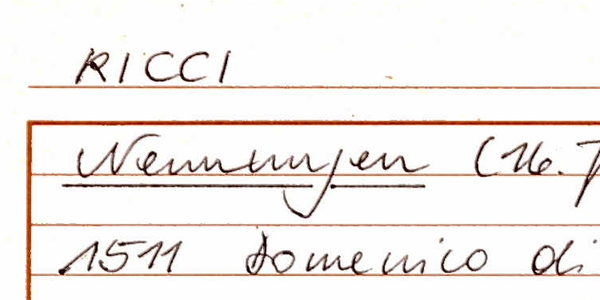 RICCI
Nennungen (16.
1511 Domenico di